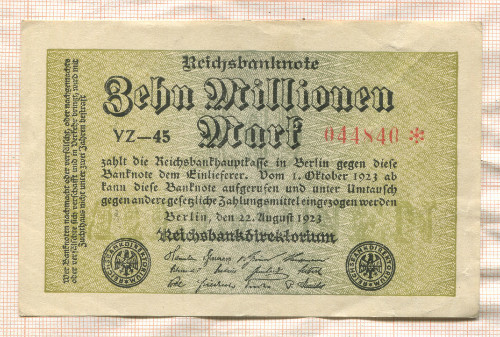 Reichsbanknote
Zehn Millionen
YZ-45 Mark 044840 *
zahlt die Reichsbankhauptkasse in Berlin gegen diese
Banknote dem Einlieferer. Vom 1. Oktober 1923 ab
kann diese Banknote aufgerufen und unter Umtausch
gegen andere gesetzliche Zahlungsmittel eingezogen werden
Berlin, den 22. August 1923
Reichsbankdirektorium
Wer Banknoten nachmacht oder verfälscht, oder nachgemachte
oder verfälschte sich verschafft und in Verkehr bringt, wird mit
Zuchthaus nicht unter zwei Jahren bestraft
REICHSBANKDIREKTORIUM
REICHSBANKDIREKTORIUM